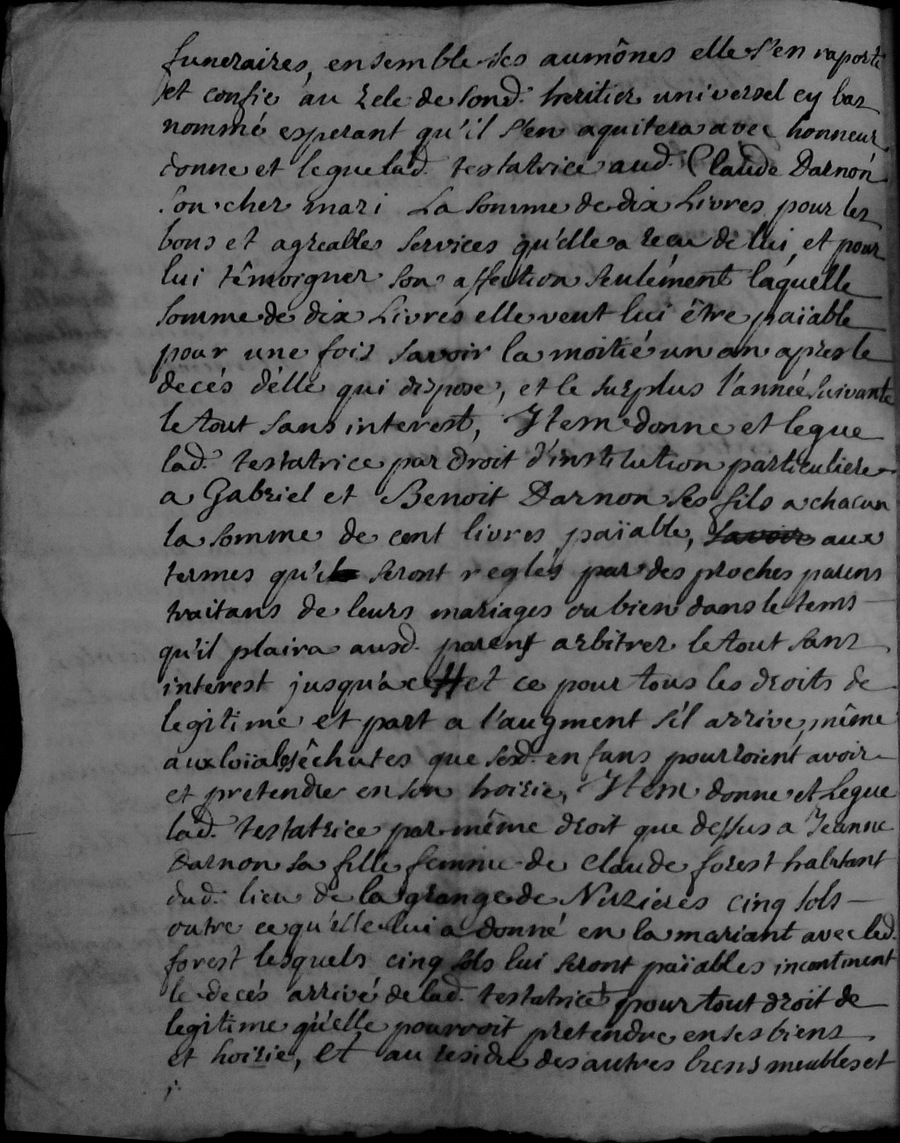 funeraires, ensemble ses aumônes elle s'en raporte
et confie au zele de sond. heritier universel cy bas
nommé esperant qu'il s'en aquitera avec honneur
donne et legue lad. testatrice aud. Claude Darnon
son cher mari La somme de dix Livres pour les
bons et agreables services qu'elle a recu de lui et pour
lui têmoigner son affection seulement laquelle
somme de dix Livres elle veut lui être païable
pour une fois savoir la moitié un an apres le
decés d'elle qui dispose, et le surplus l'année suivante
le tout sans interest, Item donne et legue
lad. testatrice par droit d'institution particuliere
a Gabriel et Benoit Darnon ses fils a chacun
la somme de cent livres païable, savoir aux
termes qu'il seront regles par des proches parens
traitans de leurs mariages ou bien dans le tems
qu'il plaira ausd. parens arbitrer le tout sans
interest jusqu'a et ce pour tous les droits de
legitime et part a l'augment s'il arrive, même
aux loïales êchutes que sesd. enfans pourroient avoir
et pretendre en son hoirie, Item donne et Legue
lad. testatrice par même droit que dessus a Jeanne
Darnon sa fille femme de Claude forest habitant
dud. lieu de la grange de Nuzieres cinq sols
outre ce qu'elle lui a donné en la mariant avec led.
forest lesquels cinq sols lui seront païables incontinent
le decés arrivé de lad. testatrice pour tout droit de
legitime qu'elle pourroit pretendre en ses biens
et hoirie, Et au residu des autres biens meubles et